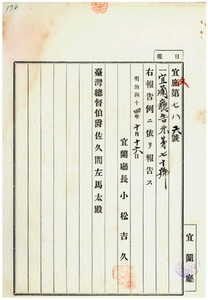 日
報
宜庶第七八六號
一宜蘭廳告示第七十號
右報告例ニ依リ報告ス
明治四十四年十月十六日
宜蘭廳長小松吉久
臺灣總督伯爵佐久間左馬太殿
宜蘭廳